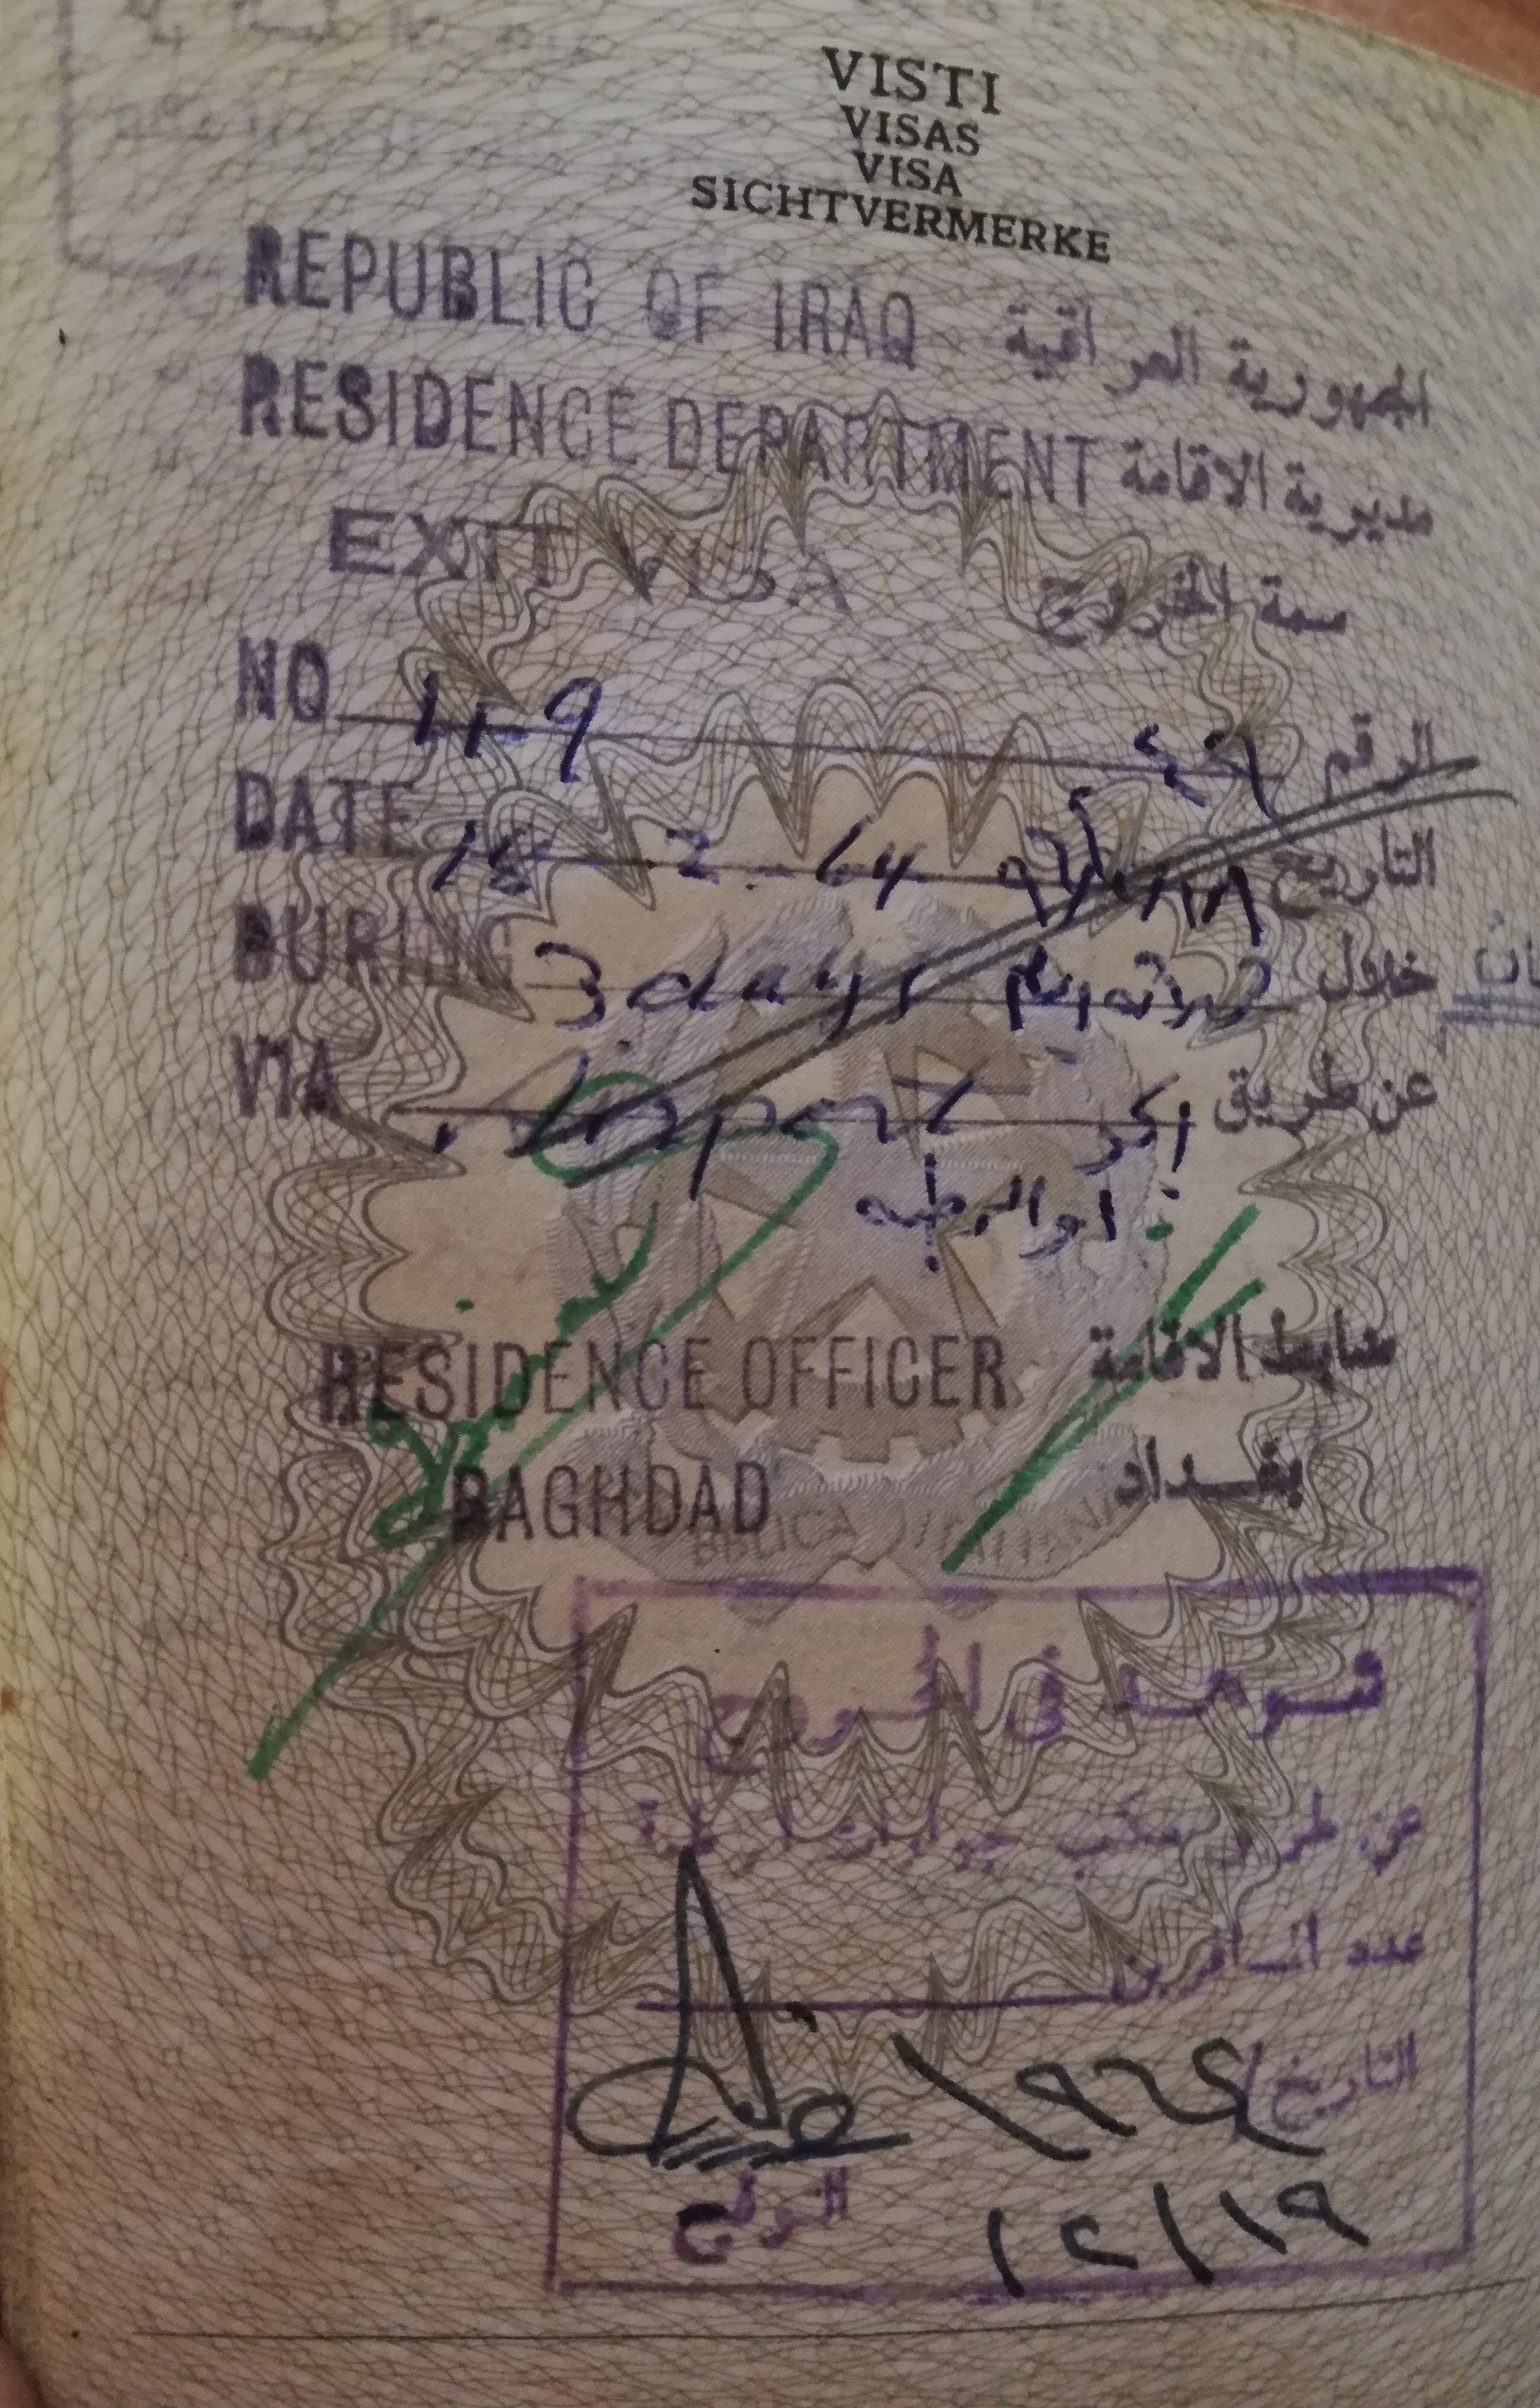 VISTI
VISAS
VISA
SICHTVERMERKE
REPUBLIC OF IRAQ الجمهورية العراقية
RESIDENCE DEPARTMENT مديرية الاقامة
EXIT VISA سمة الخروج
NO الرقم
DATE 18 - 2 - 64 التاريخ
DURING 3 days ثلاثة ايام خلال
VIA عن طريق
او الرطبه
RESIDENCE OFFICER ضابط الاقامة
BAGHDAD بغداد
REPUBBLICA ITALIANA
شوهد في الخروج
عن طريق مكتب جوازات الرطبة
عدد المسافرين
التاريخ / ١٩٦٤
١٩ / ٢ /
التوقيع